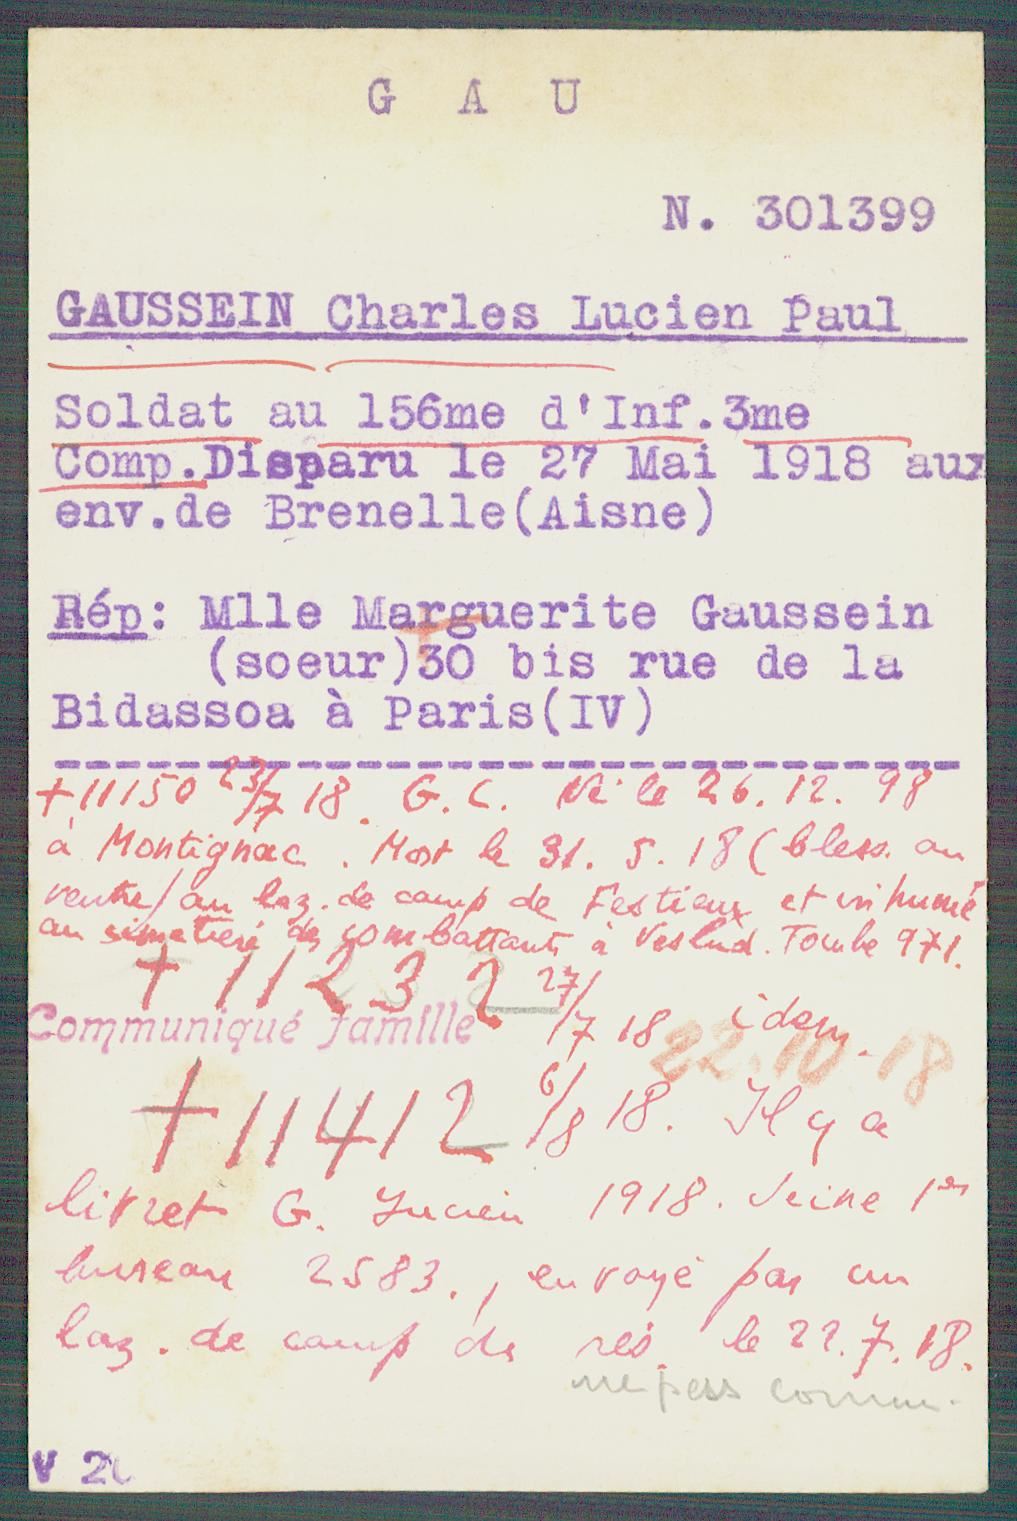 G A U
N. 301399
GAUSSEIN Charles Lucien Paul
Soldat au 156me d'Inf.3me
Comp.Disparu le 27 Mai 1918 aux
env.de Brenelle(Aisne)
Rép: Mlle Marguerite Gaussein
(soeur)30 bis rue de la
Bidassoa à Paris(IV)
+ 11150 23/7 18. G. C. Né le 26. 12. 98
à Montignac. Mort le 31. 5. 18 (bless. au
ventre) au laz. de camp de Festieux et inhumé
au simetière des combattants à Veslud. Tombe 971.
+ 11232 27/7 18 idem.
Communiqué famille
22.10.18
+ 11412 6/8 18. Il y a
livret G. Lucien 1918. Seine 1er
bureau 2583., envoyé par un
laz. de camp de rés. le 22.7.18.
ne pas comm.
V 2